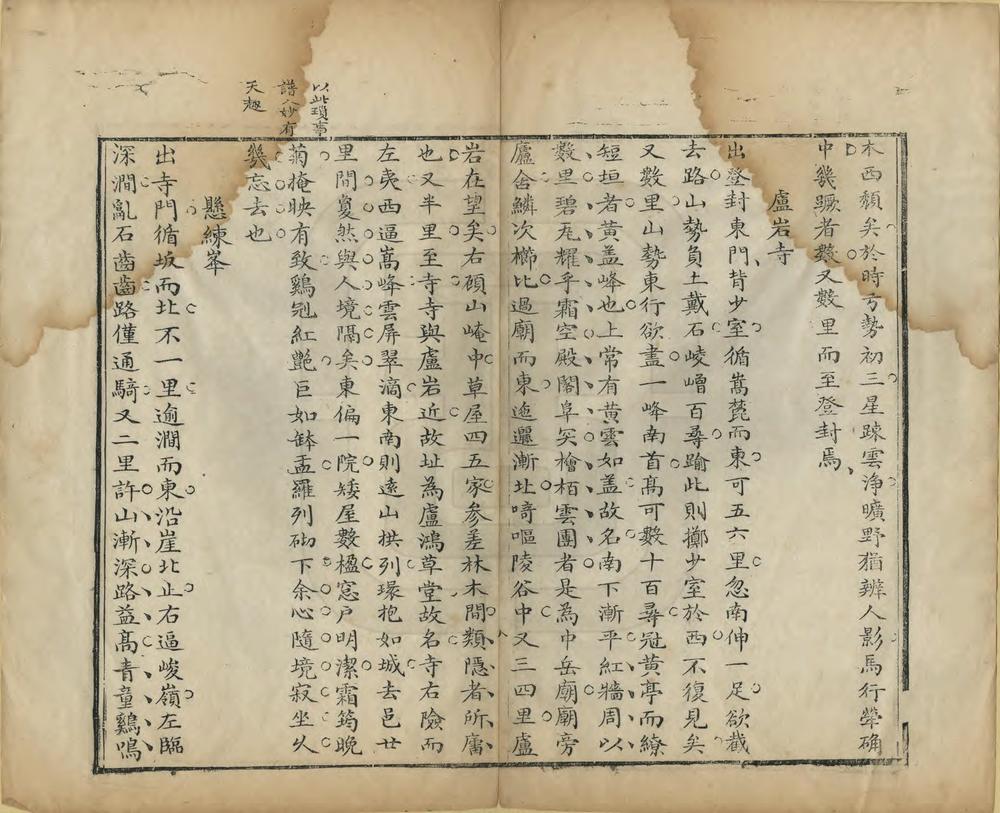 木西頹矣於時弓勢初三星踈雲淨曠野猶辨人影馬行犖确
中幾蹶者數又數里而至登封焉
盧岩寺
出登封東門背少室循嵩麓而東可五六里忽南伸一足欲截
去路山勢負土戴石崚嶒百尋踰此則擲少室於西不復見矣
又數里山勢東行欲盡一峰南首高可數十百尋冠黃亭而繚
短垣者黃盖峰也上常有黃雲如盖故名南下漸平紅牆周以
數里碧瓦耀乎霜空殿閣阜矣檜栢雲團者是為中岳廟廟旁
廬舍鱗次櫛比過廟而東迤邐漸北﨑嶇陵谷中又三四里盧
岩在望矣右碩山崦中草屋四五家参差林木間類隱者所㢊
也又半里至寺寺與盧岩近故址為盧鴻草堂故名寺右險而
左夷西逼嵩峰雲屏翠滴東南則遠山拱列環抱如城去邑廿
里間敻然與人境隔矣東偏一院矮屋數楹窓户明潔霜筠晚
菊掩映有致鷄冠紅艷巨如缽盂羅列砌下余心隨境寂坐乆
幾忘去也
以此瑣事
譜入妙有
天趣
懸練峯
出寺門循坂而北不一里逾澗而東沿崖北上右逼峻嶺左臨
深澗亂石齒齒路僅通騎又二里許山漸深路益高青童鷄鳴